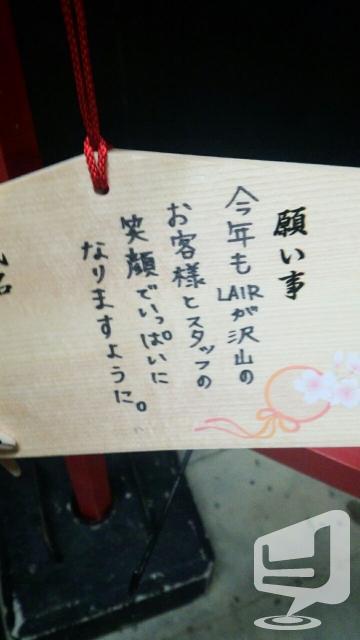 願い事
今年もLAIRが沢山の
お客様とスタッフの
笑顔でいっぱいに
なりますように。